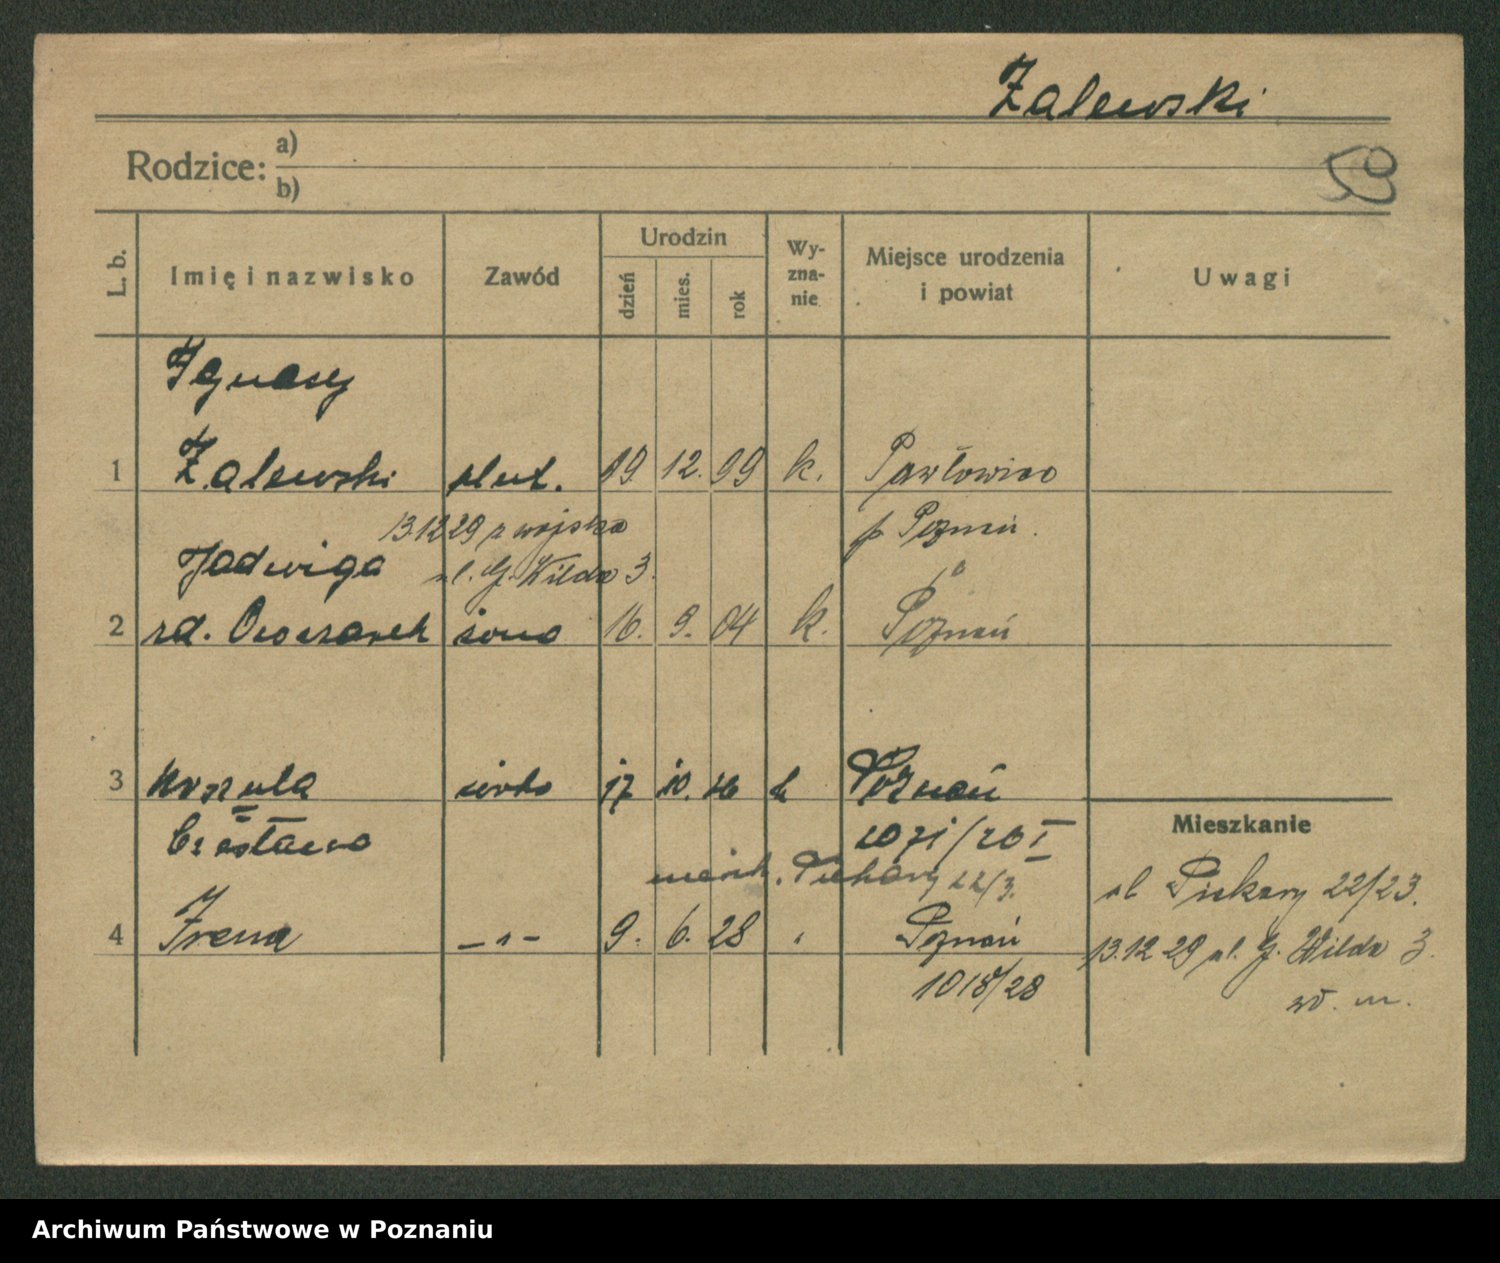 Zalewski
Rodzice: a)
b)
L. b.
Imię i nazwisko
Zawód
Urodzin
dzień
mies.
rok
Wy-
zna-
nie
Miejsce urodzenia
i powiat
Uwagi
Ignacy
1 Zalewski plut. 19. 12. 99 k. Pawłowice
13.12 29 z wojska p. Poznań.
Jadwiga ul. G. Wilda 3.
2 zd. Owczarek żona 16. 9. 04 k. Poznań
3 Urszula córka 17 10. 26 k Poznań
Mieszkanie
Czesława
miesk. Piekary 22/3.
ul Piekary 22/23.
4 Irena — " — 9. 6. 28 Poznań
13.12 29 ul. G. Wilda 3.
1018/28